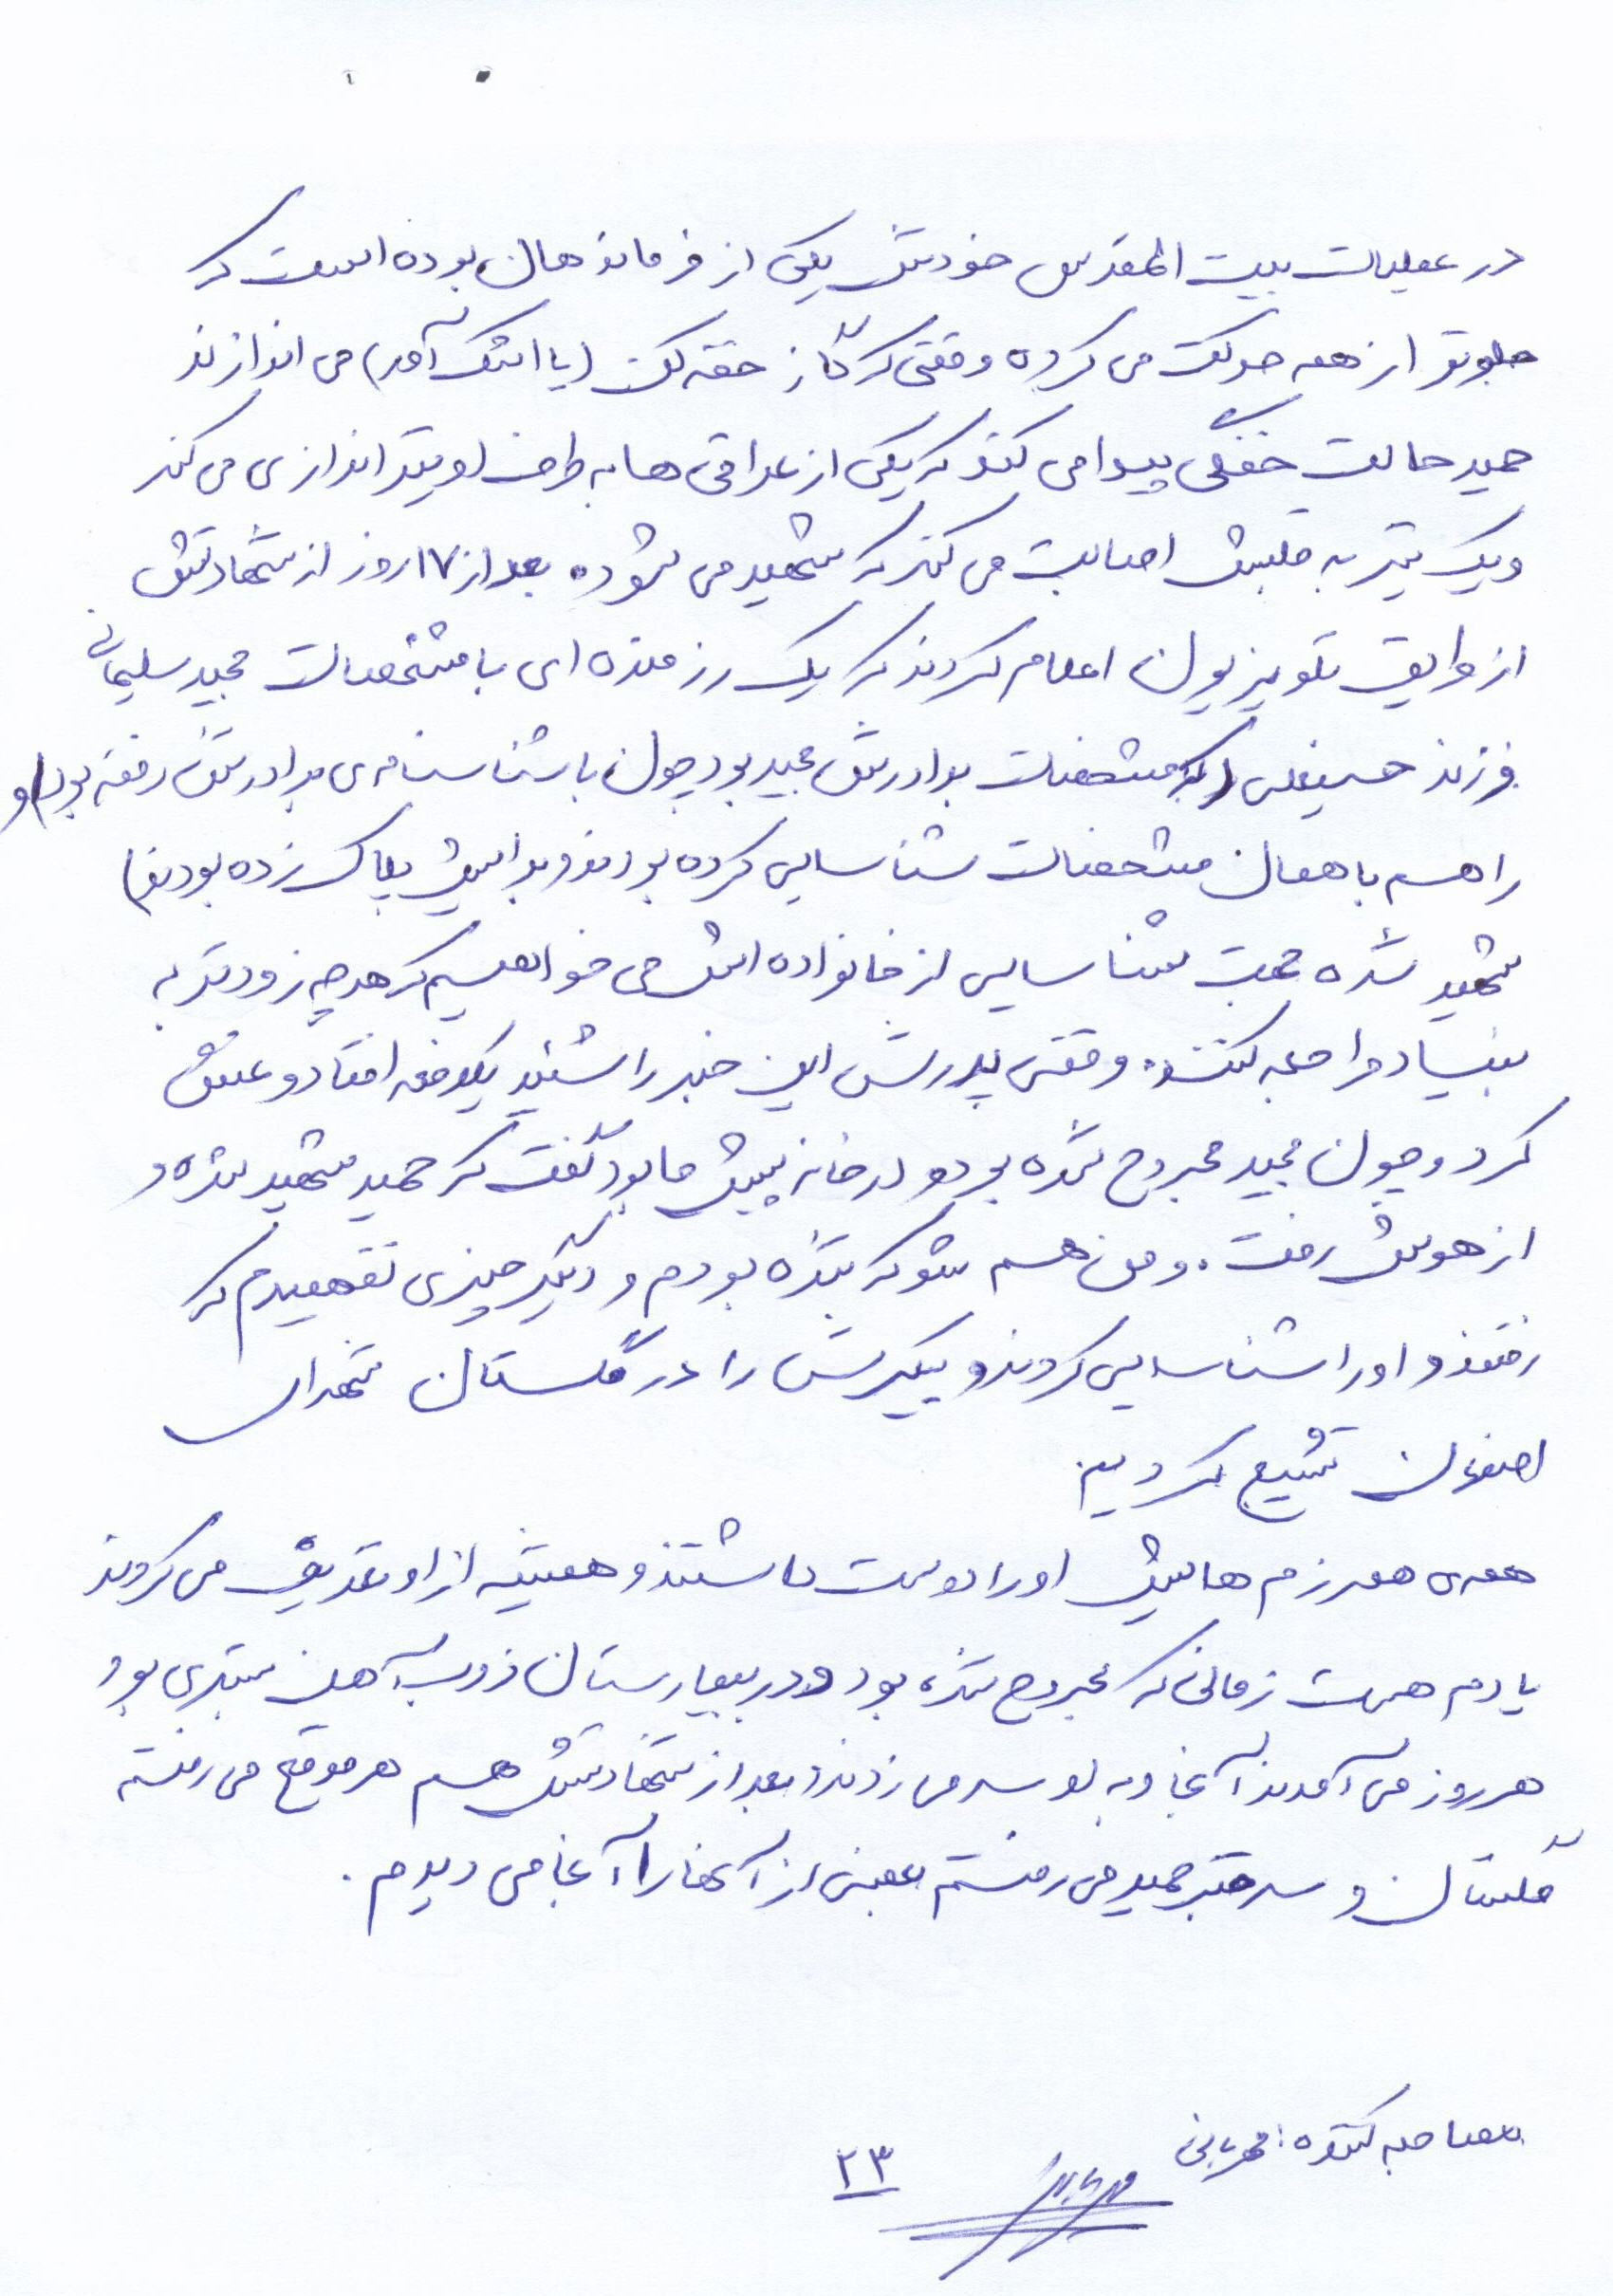 در عملیات بیت المقدس خودش یکی از فرماندهان بوده است که
جلوتر از همه حرکت می کرده وقتی که گاز خفه کن (یا اشک آور) می اندازند
حمید حالت خفگی پیدا می کند که یکی از عراقی ها به طرف او تیراندازی می کند
و یک تیر به قلبش اصابت می کند که شهید می شود. بعد از ۱۷ روز از شهادتش
از طریق تلویزیون اعلام کردند که یک رزمنده ای با مشخصات مجید سلیمانی
فرزند حسینعلی (که مشخصات برادرش مجید بود چون با شناسنامه ی برادرش رفته بود او
را هم با همان مشخصات شناسایی کرده بودند و برایش پلاک زده بودند)
شهید شده جهت شناسایی از خانواده اش می خواهیم که هر چه زودتر به
بنیاد مراجعه کنند. وقتی پدرش این خبر را شنید یکدفعه افتاد و غش
کرد و چون مجید مجروح شده بود و در خانه پیش ما بود گفت که حمید شهید شده و
از هوش رفت. و من هم شوکه شده بودم و دیگر چیزی نفهمیدم که
رفتند و او را شناسایی کردند و پیکرش را در گلستان شهدای
اصفهان تشییع کردیم.
همه ی همرزم هایش او را دوست داشتند و همیشه از او تعریف می کردند
یادم هست زمانی که مجروح شده بود و در بیمارستان ذوب آهن بستری بود
هر روز می آمدند آنجا و به او سر می زدند و بعد از شهادتش هم هر موقع می رفتم
گلستان و سر قبر حمید می رفتم بعضی از آنها را آنجا می دیدم.
مصاحبه کننده: مهربانی
۲۳